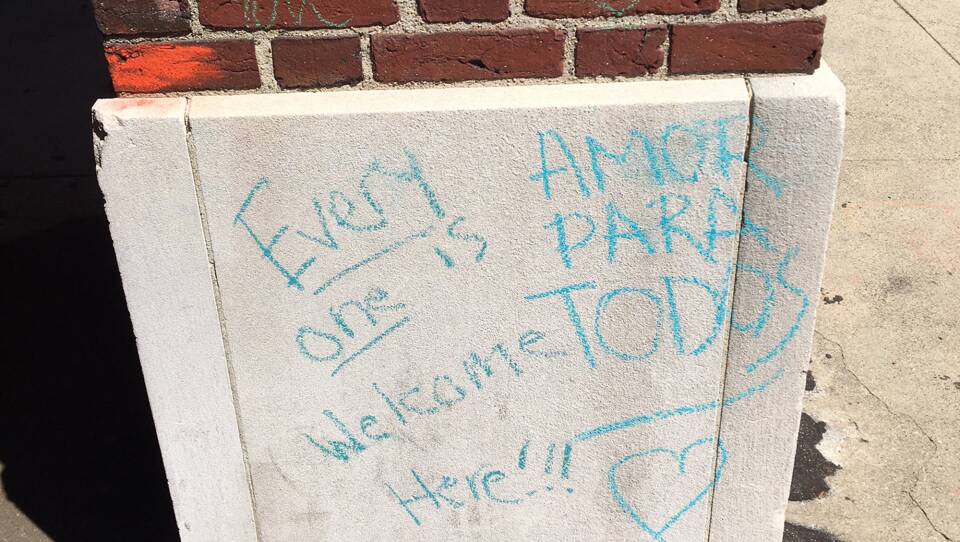 Every
is
one
Welkome
Here!!!
AMOR
PARA
TODOS